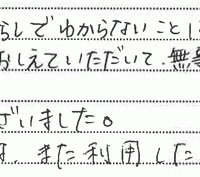 らしでわからないこと
おしえていただいて、無
ざいました。
また利用した